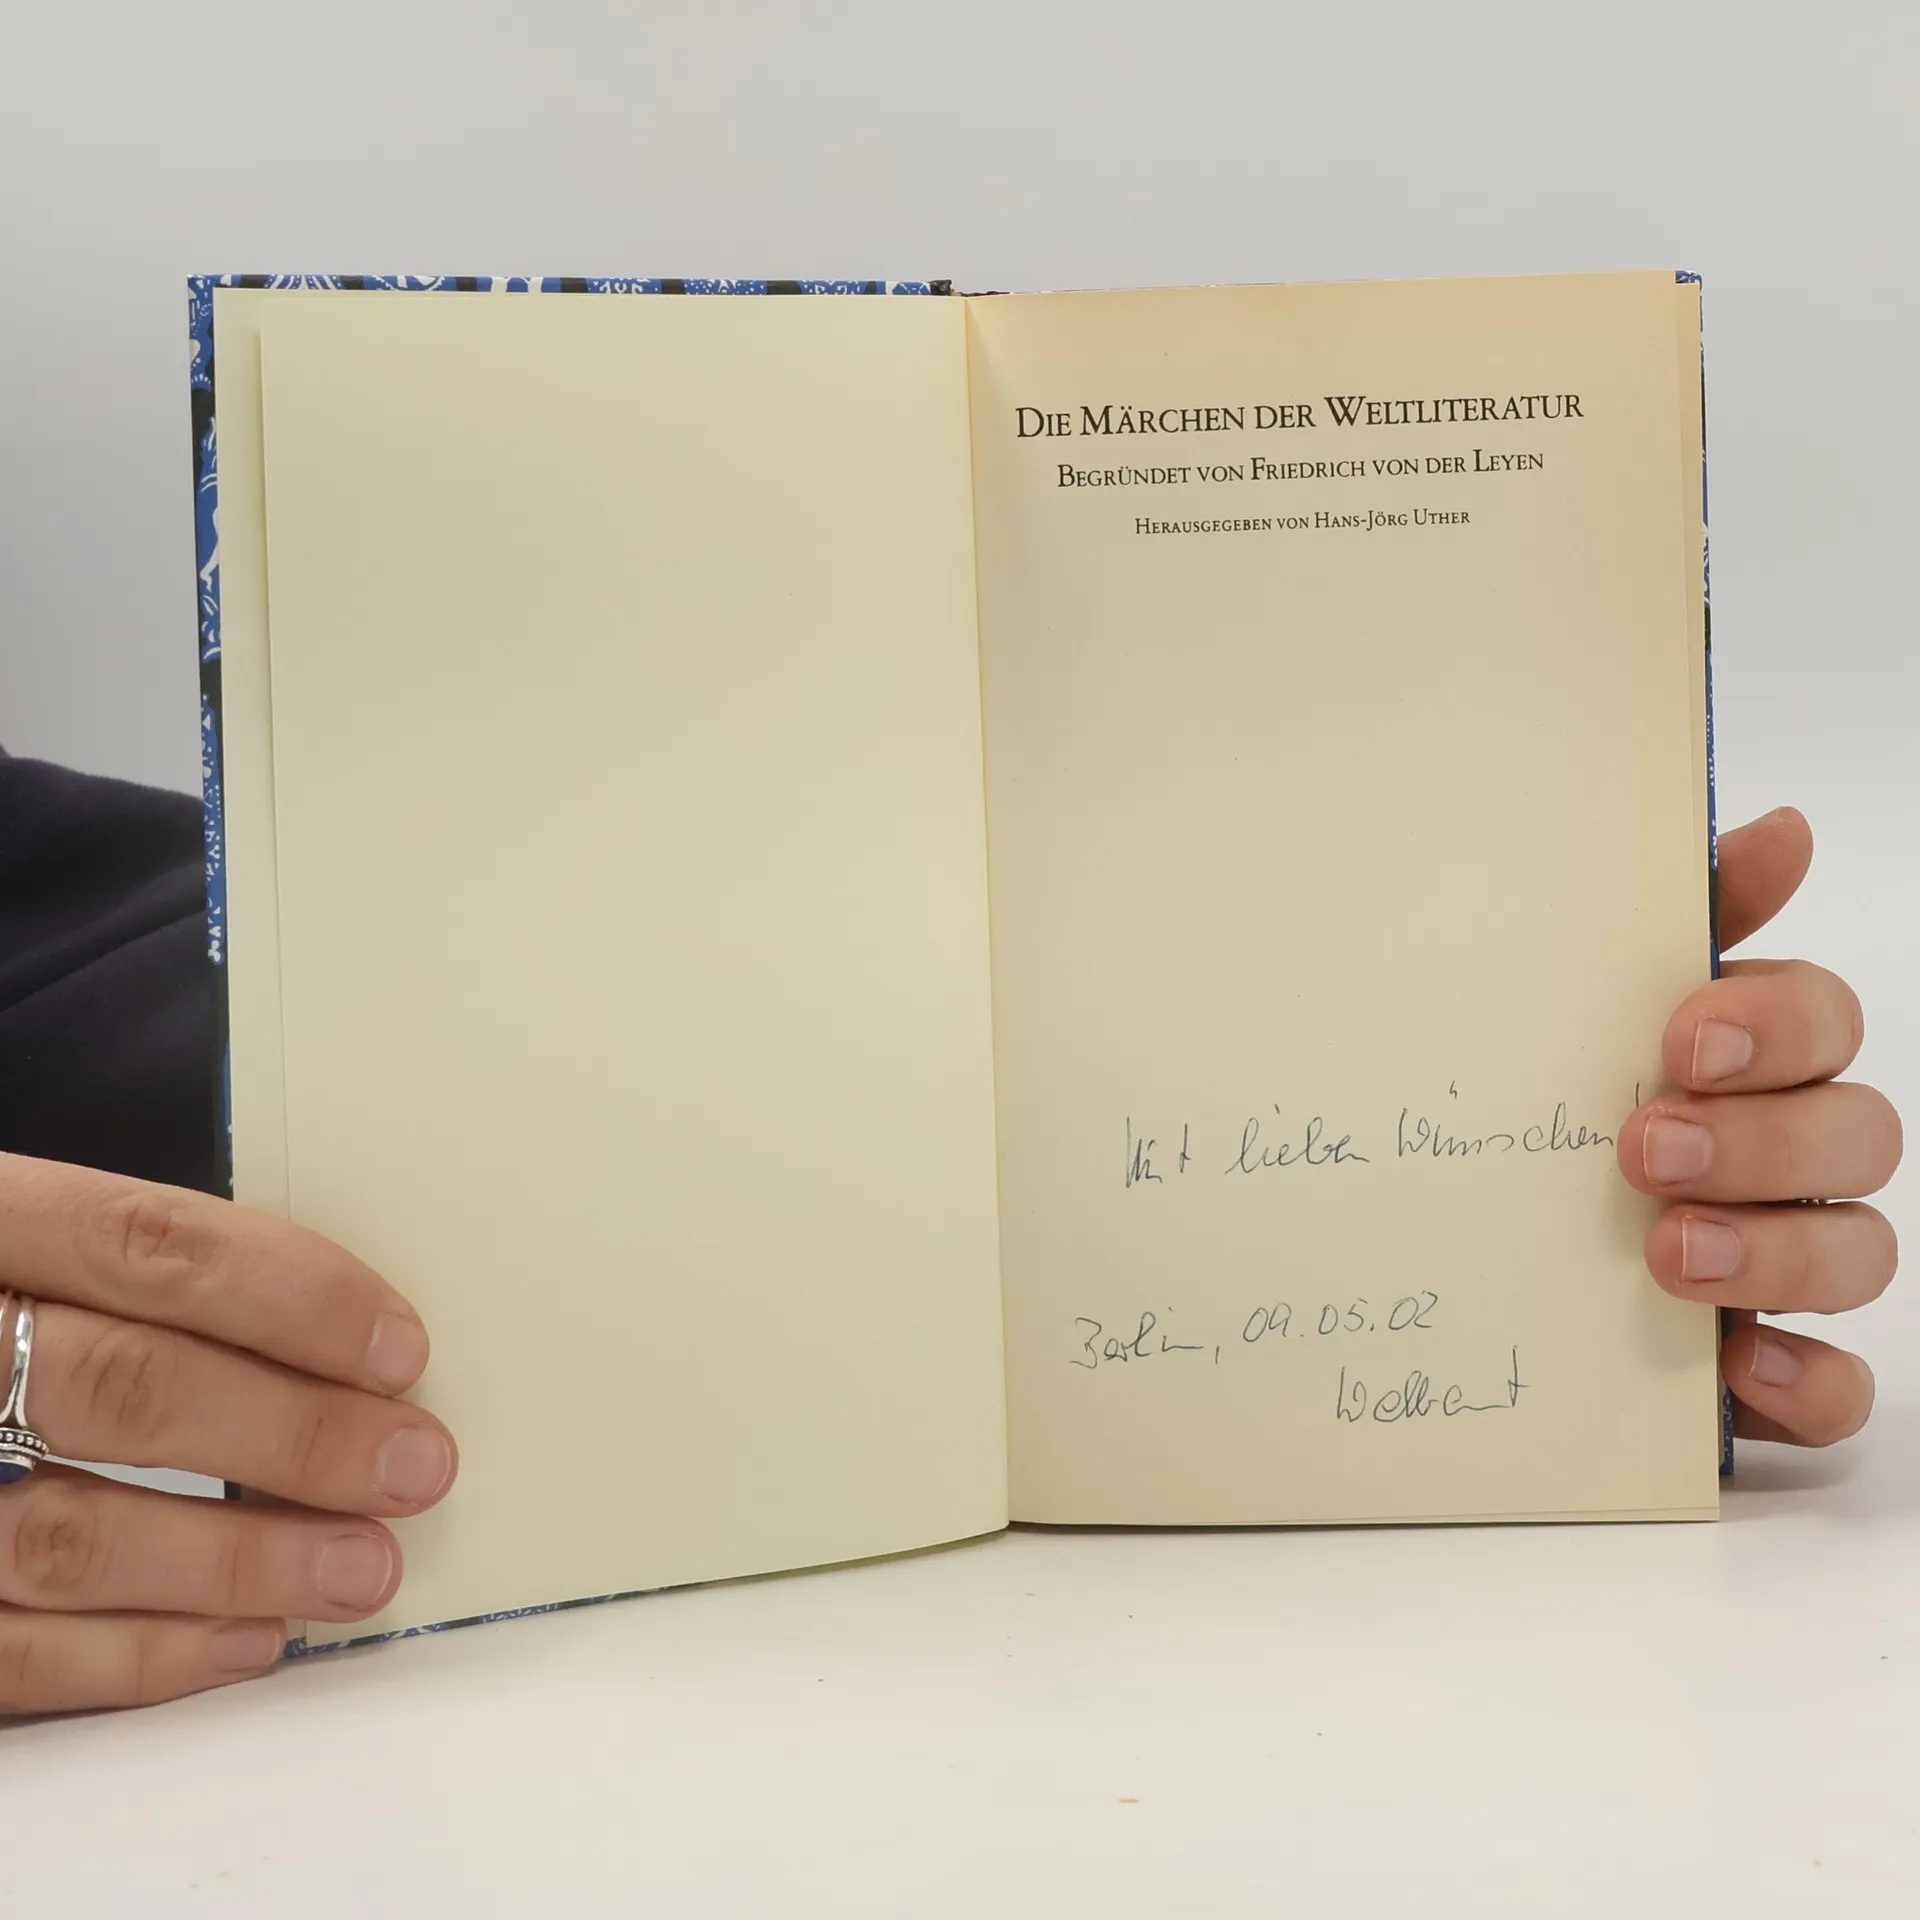 DIE MÄRCHEN DER WELTLITERATUR
BEGRÜNDET VON FRIEDRICH VON DER LEYEN
HERAUSGEGEBEN VON HANS-JÖRG UTHER
Mit lieben Wünschen!
Berlin, 09.05.02